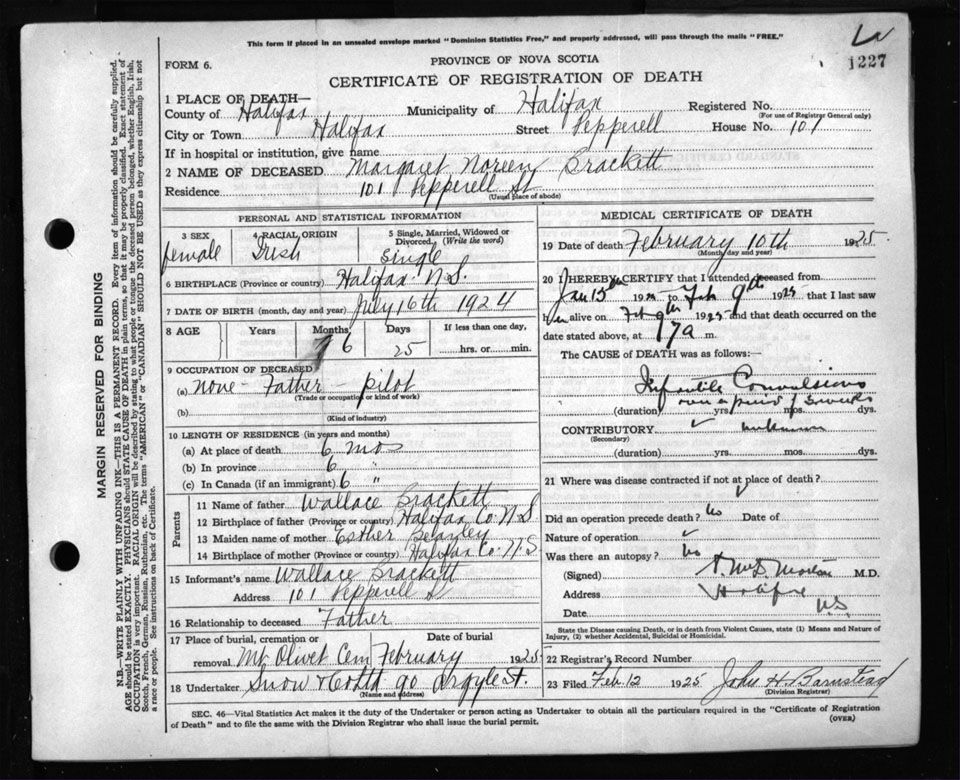 This form if placed in an unsealed envelope marked "Dominion Statistics Free," and properly addressed, will pass through the mails "FREE."
1227
FORM 6.
PROVINCE OF NOVA SCOTIA
CERTIFICATE OF REGISTRATION OF DEATH
1 PLACE OF DEATH—
County of Halifax Municipality of Halifax Registered No.
(For use of Registrar General only)
City or Town Halifax Street Pepperell House No. 101
If in hospital or institution, give name
2 NAME OF DECEASED Margaret Noreen Brackett
Residence 101 Pepperell St
(Usual place of abode)
PERSONAL AND STATISTICAL INFORMATION
3 SEX 4 RACIAL ORIGIN 5 Single, Married, Widowed or Divorced. (Write the word)
female Irish single
6 BIRTHPLACE (Province or country) Halifax N S.
7 DATE OF BIRTH (month, day and year) July 16th 1924
8 AGE Years Months Days If less than one day,
6 25 hrs. or min.
9 OCCUPATION OF DECEASED
(a) none - Father - pilot
(Trade or occupation or kind of work)
(b)
(Kind of industry)
10 LENGTH OF RESIDENCE (in years and months)
(a) At place of death 6 mos
(b) In province 6 "
(c) In Canada (if an immigrant) 6 "
Parents
11 Name of father Wallace Brackett
12 Birthplace of father (Province or country) Halifax Co. N S
13 Maiden name of mother Esther
14 Birthplace of mother (Province or country) Halifax Co. N. S
15 Informant's name Wallace Brackett
Address 101 Pepperell St
16 Relationship to deceased Father
17 Place of burial, cremation or removal Date of burial
Mt Olivet Cem February 1925
18 Undertaker Snow & Co Ltd 90 Argyle St.
(Name and address)
MEDICAL CERTIFICATE OF DEATH
19 Date of death February 10th 1925.
(Month, day and year)
20 I HEREBY CERTIFY that I attended deceased from
Jan 15th 19 to Feb 9th 1925 that I last saw
her alive on Feb 9th 1925 and that death occurred on the
date stated above, at 17a m.
The CAUSE of DEATH was as follows:
Infantile Convulsions
over a period of 3 weeks
(duration) yrs. mos. dys.
CONTRIBUTORY unknown
(Secondary)
(duration) yrs. mos. dys.
21 Where was disease contracted if not at place of death?
Did an operation precede death? No Date of
Nature of operation
Was there an autopsy? No
(Signed) Morton M.D.
Address Halifax
Date N.S.
State the Disease causing Death, or in death from Violent Causes, state (1) Means and Nature of
Injury, (2) whether Accidental, Suicidal or Homicidal.
22 Registrar's Record Number
23 Filed Feb. 12 1925 John H. Barnstead
(Division Registrar)
SEC. 46—Vital Statistics Act makes it the duty of the Undertaker or person acting as Undertaker to obtain all the particulars required in the "Certificate of Registration
of Death" and to file the same with the Division Registrar who shall issue the burial permit.
(OVER)
MARGIN RESERVED FOR BINDING
N.B.—WRITE PLAINLY WITH UNFADING INK—THIS IS A PERMANENT RECORD. Every item of information should be carefully supplied.
AGE should be stated EXACTLY. PHYSICIANS should STATE CAUSE OF DEATH in plain terms, so that it may be properly classified. Exact statement of
OCCUPATION is very important. RACIAL ORIGIN will be described by stating to what people or tongue the deceased person belonged, whether English, Irish,
Scotch, French, German, Russian, Ruthenian, etc. The terms "AMERICAN" or "CANADIAN" SHOULD NOT BE USED as they express citizenship but not
a race or people. See instructions on back of Certificate.